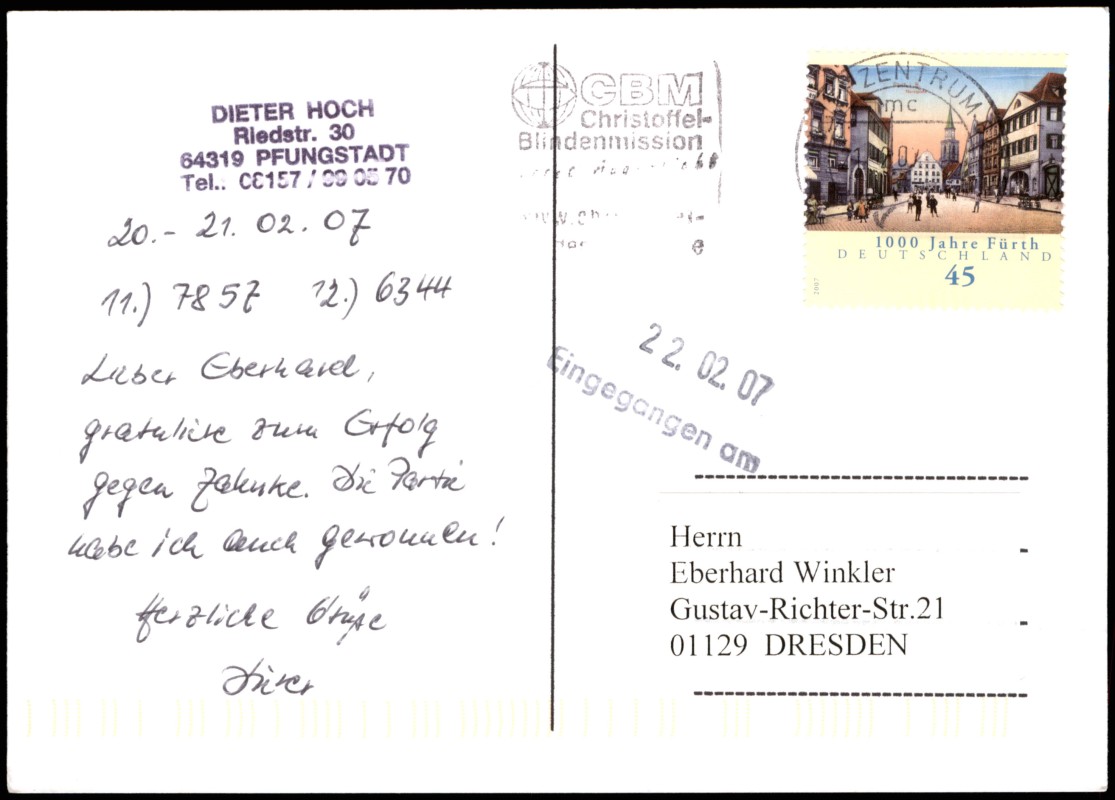 DIETER HOCH
Riedstr. 30
64319 PFUNGSTADT
Tel.: 70
20.- 21. 02. 07
11.) 7857 12.) 6344
Lieber Eberhard,
gratuliere zum Erfolg
gegen Zahnke. Die Partie
habe ich auch gewonnen!
Herzliche Grüße
Dieter
CBM
Christoffel-
Blindenmission
ZENTRUM
mc
1000 Jahre Fürth
DEUTSCHLAND
45
2007
22. 02. 07
Eingegangen am
Herrn
Eberhard Winkler
Gustav-Richter-Str.21
01129 DRESDEN